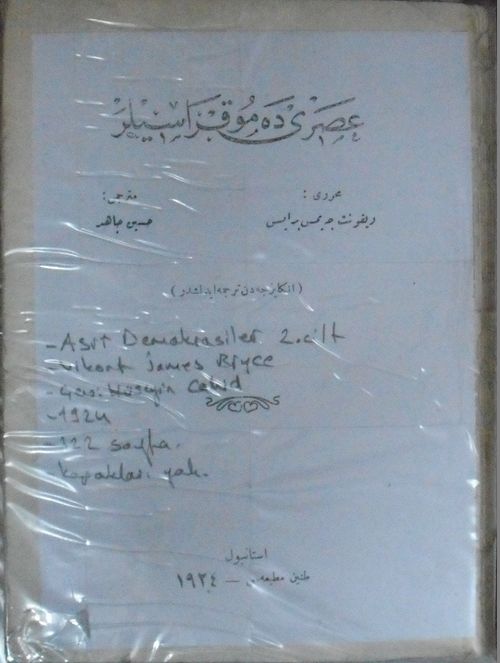 عصرى ده موقراسيلر
محررى :
ويقونت جيمس برايس
مترجمى :
حسين جاهد
( انكليزجه دن ترجمه ايدلمشدر )
-Asrî Demokrasiler 2.cilt
-Vikont James Bryce
-Çev: Hüseyin Cahid
-1924
-122 sayfa.
Kapakları yok.
استانبول
طنين مطبعه سى — ١٩٢٤